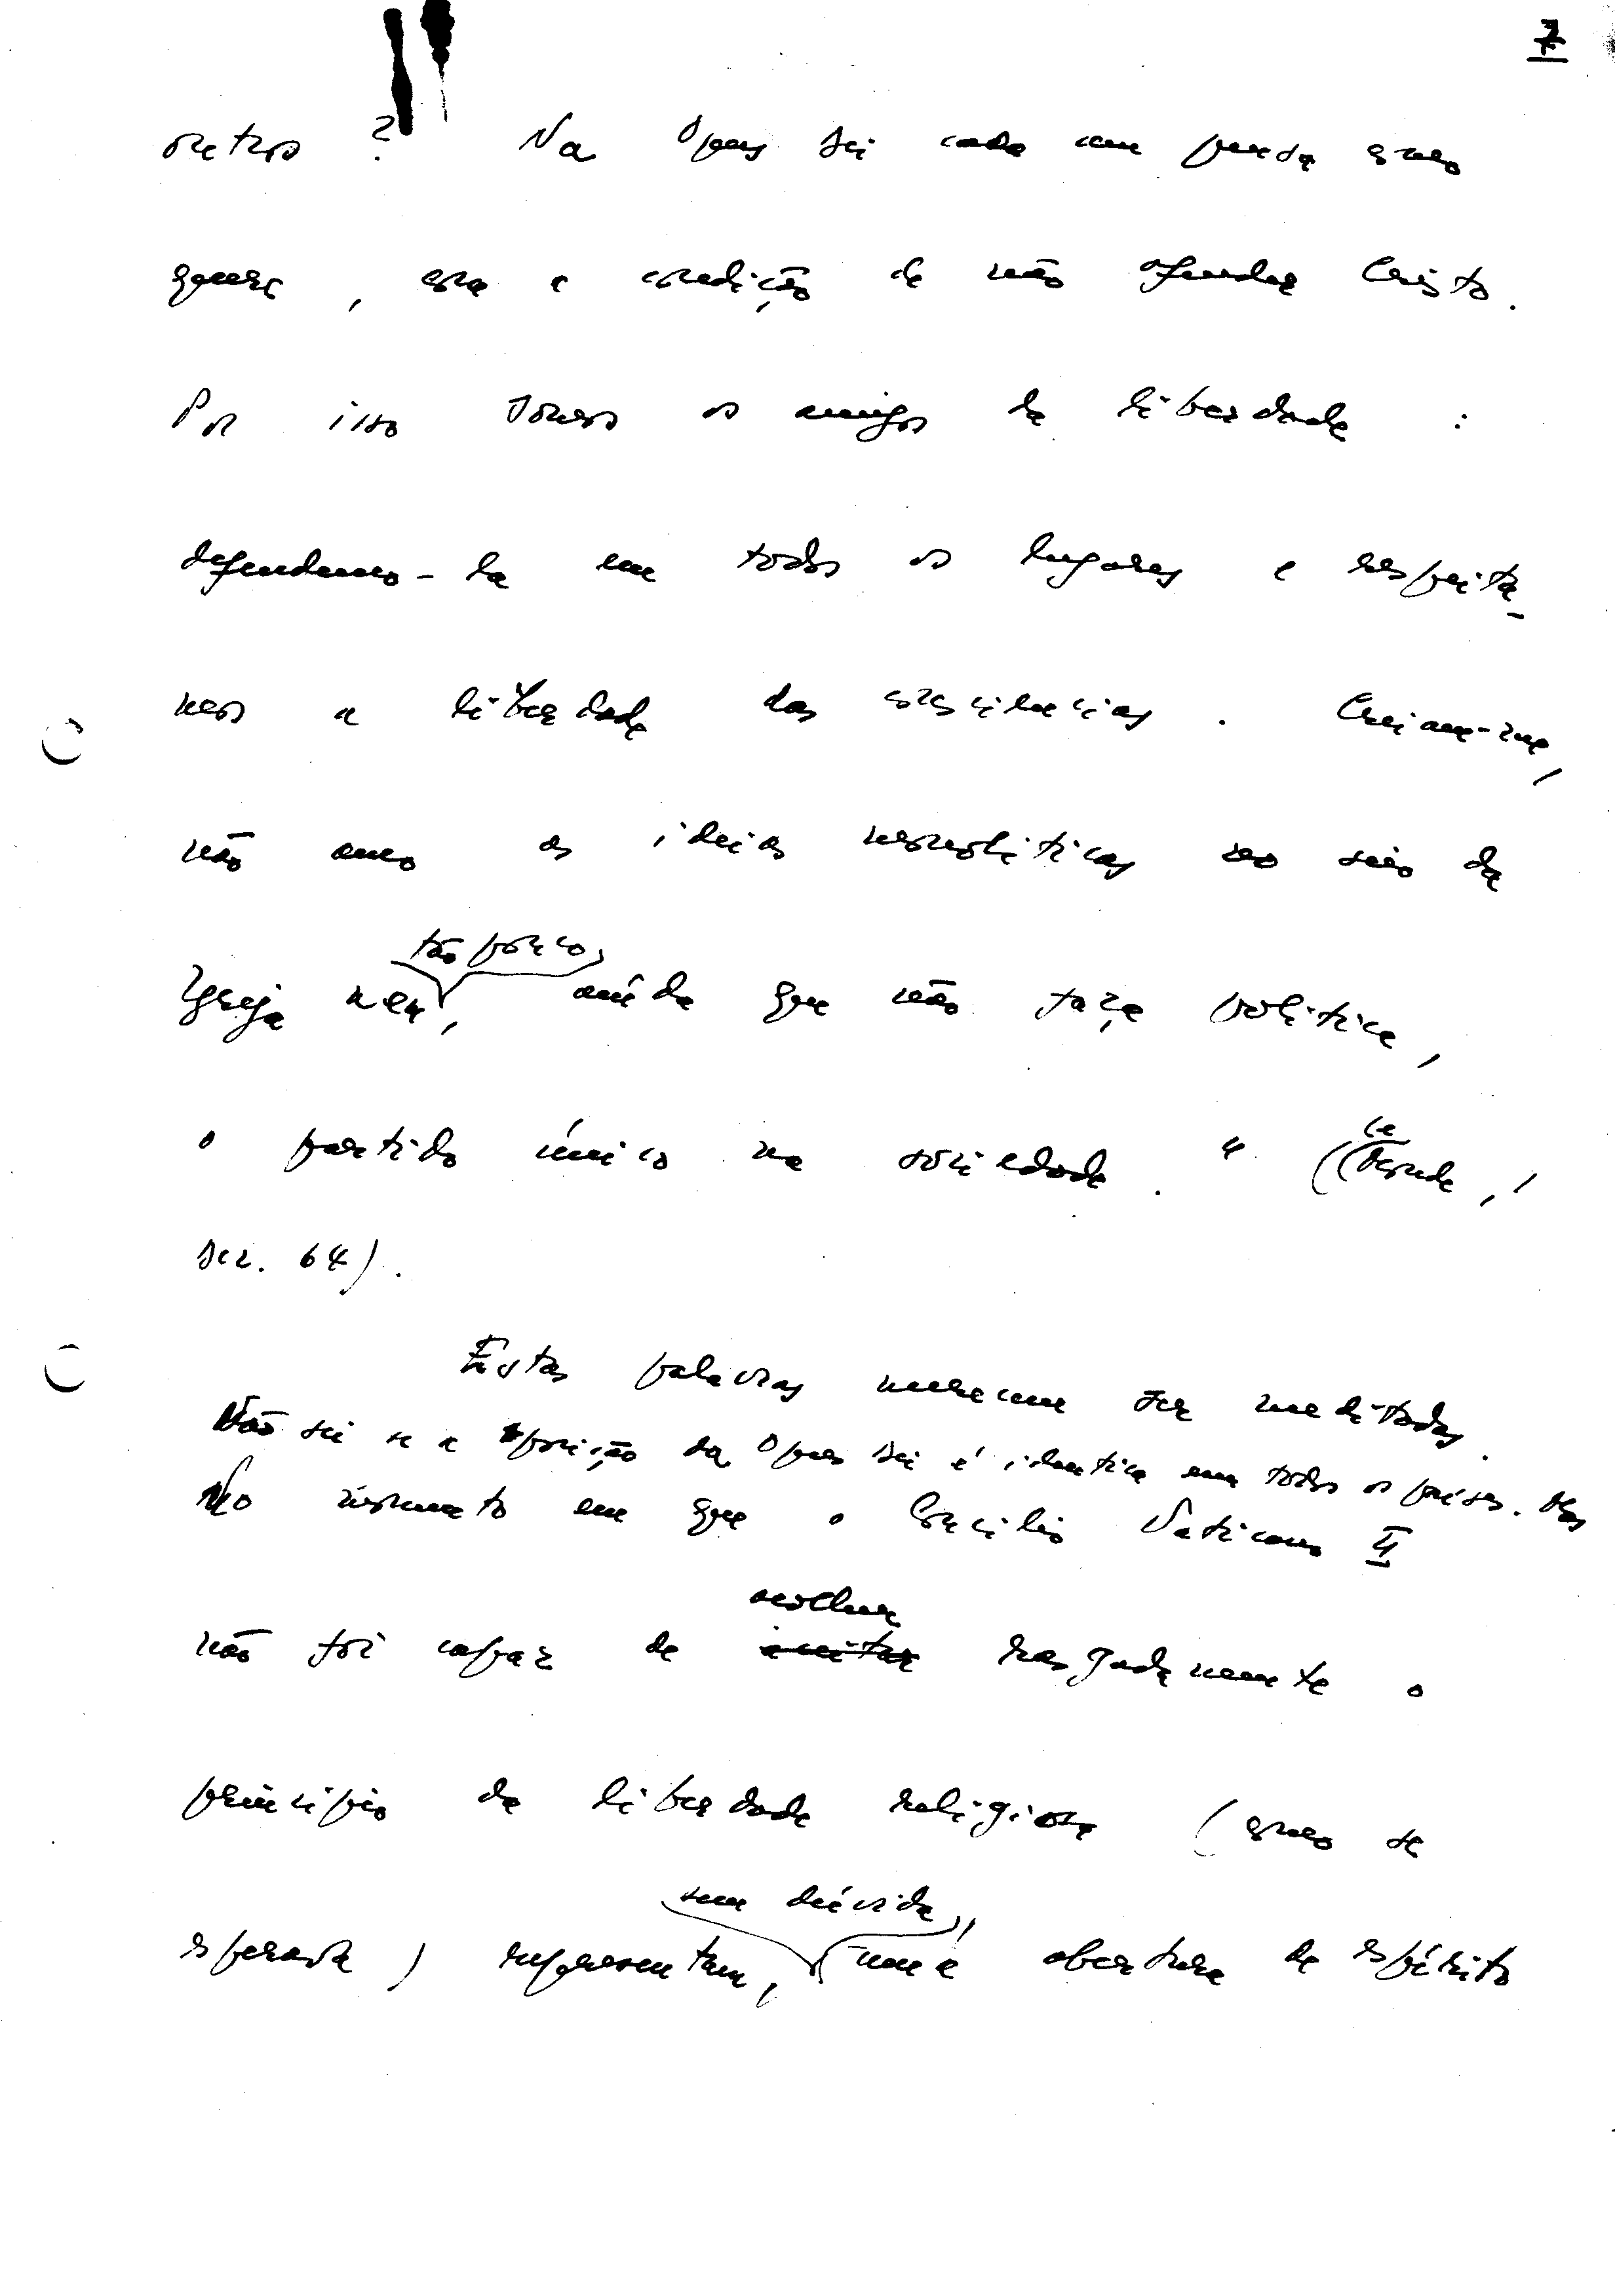 7
outros ? Na Opus Dei cada um pensa como
quer, com a condição de não ofender Cristo.
Por isso somos os amigos da liberdade :
defendemo-la em todos os lugares e respeita-
mos a liberdade das consciências. Creiam-me,
não amo as ideias monolíticas no seio da
Igreja nem, tão pouco, ainda que não faça política,
o partido único na sociedade. " (Le Monde,
Dez. 64).
Estas palavras merecem ser meditadas.
Não sei se a posição da Opus Dei é identica em todos os países. Mas
No momento em que o Concílio Vaticano II
não foi capaz de aceitar acolher rasgadamente o
princípio da liberdade religiosa (como se
esperava) representam, sem dúvida, uma abertura de espírito